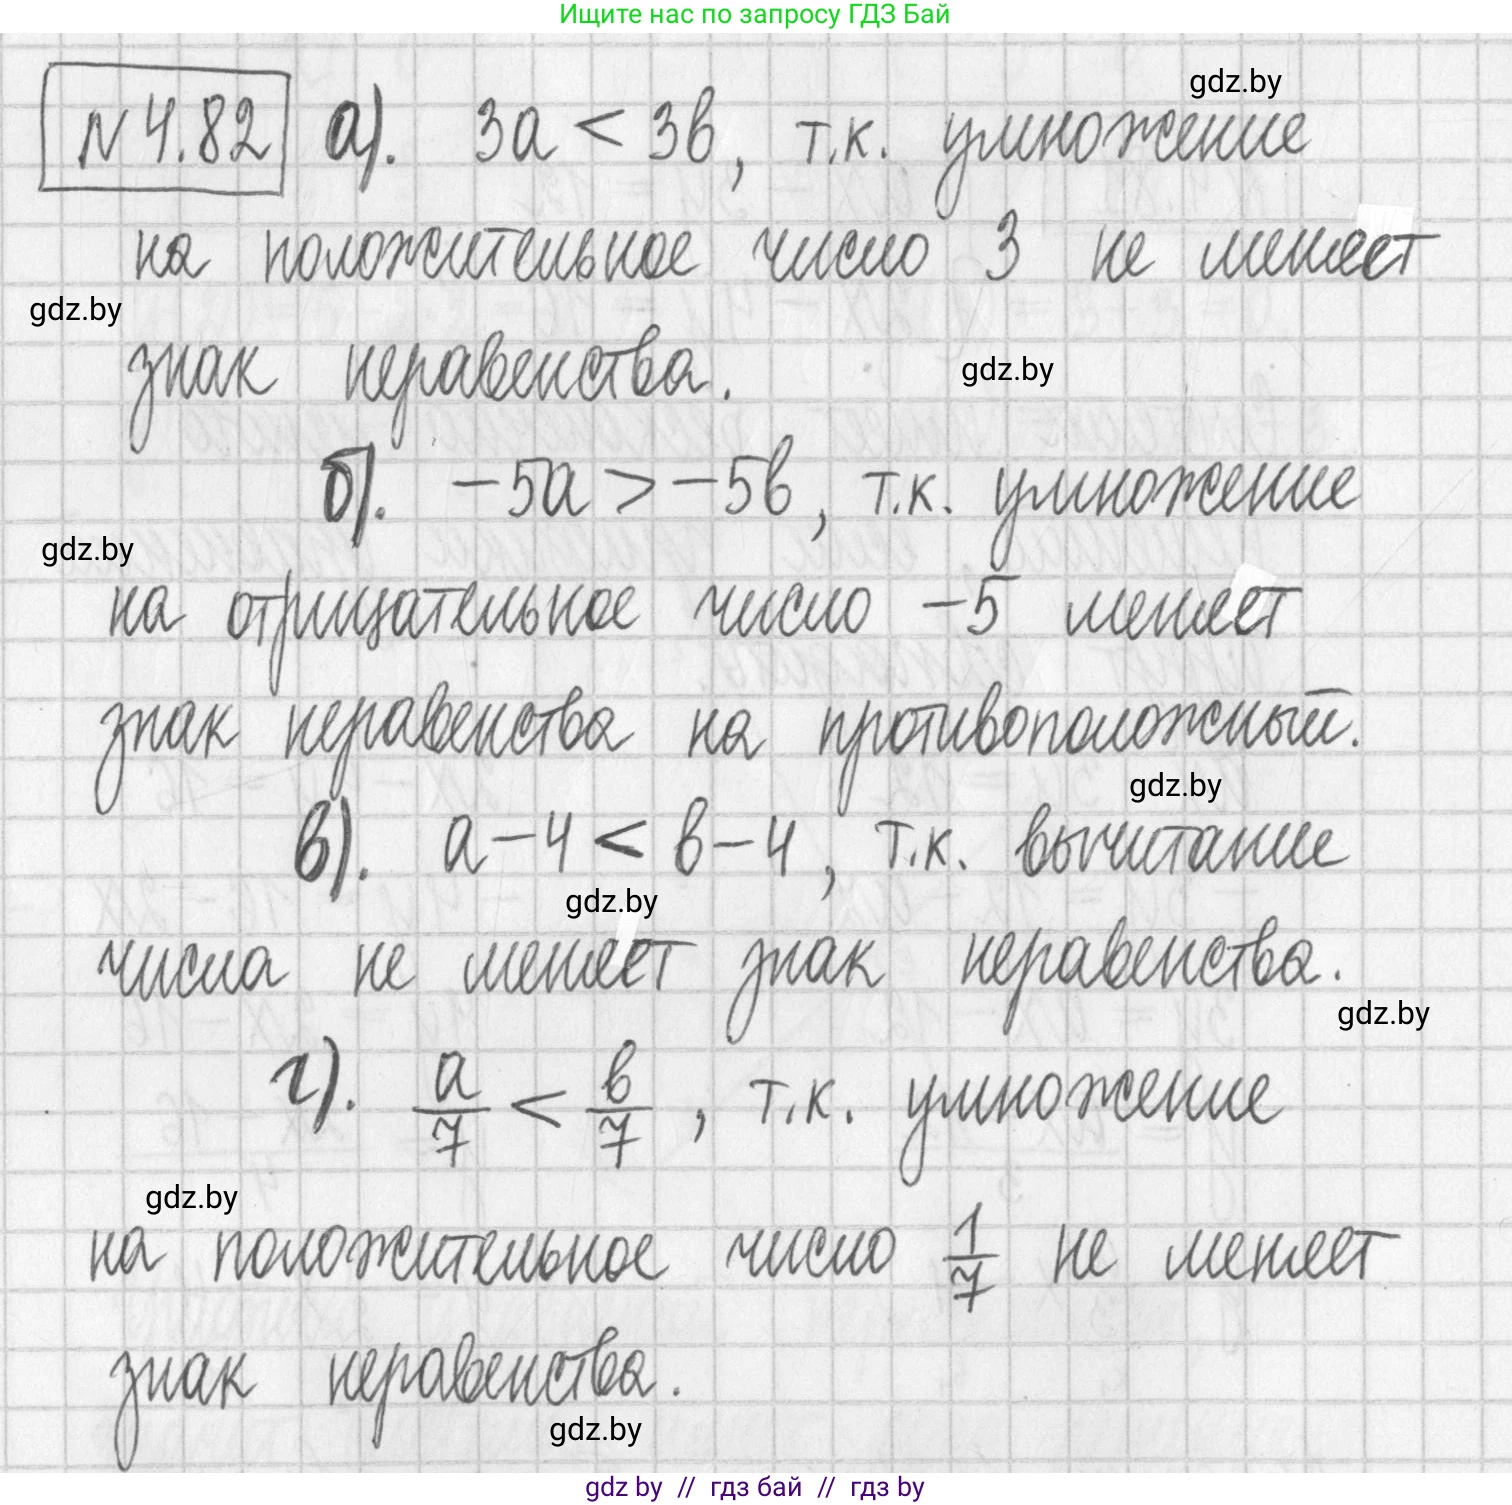 Ищите нас по запросу ГДЗ Бай
gdz.by
№4.82 а). 3а < 3в, т.к. умножение
на положительное число 3 не меняет
gdz.by
знак неравенства.
gdz.by
б). −5а > −5в, т.к. умножение
gdz.by
на отрицательное число −5 меняет
знак неравенства на противоположный.
gdz.by
в). а−4 < в−4, т.к. вычитание
gdz.by
числа не меняет знак неравенства.
gdz.by
г). а/7 < в/7, т.к. умножение
gdz.by
на положительное число 1/7 не меняет
знак неравенства.
gdz.by
gdz by // гдз бай // гдз by